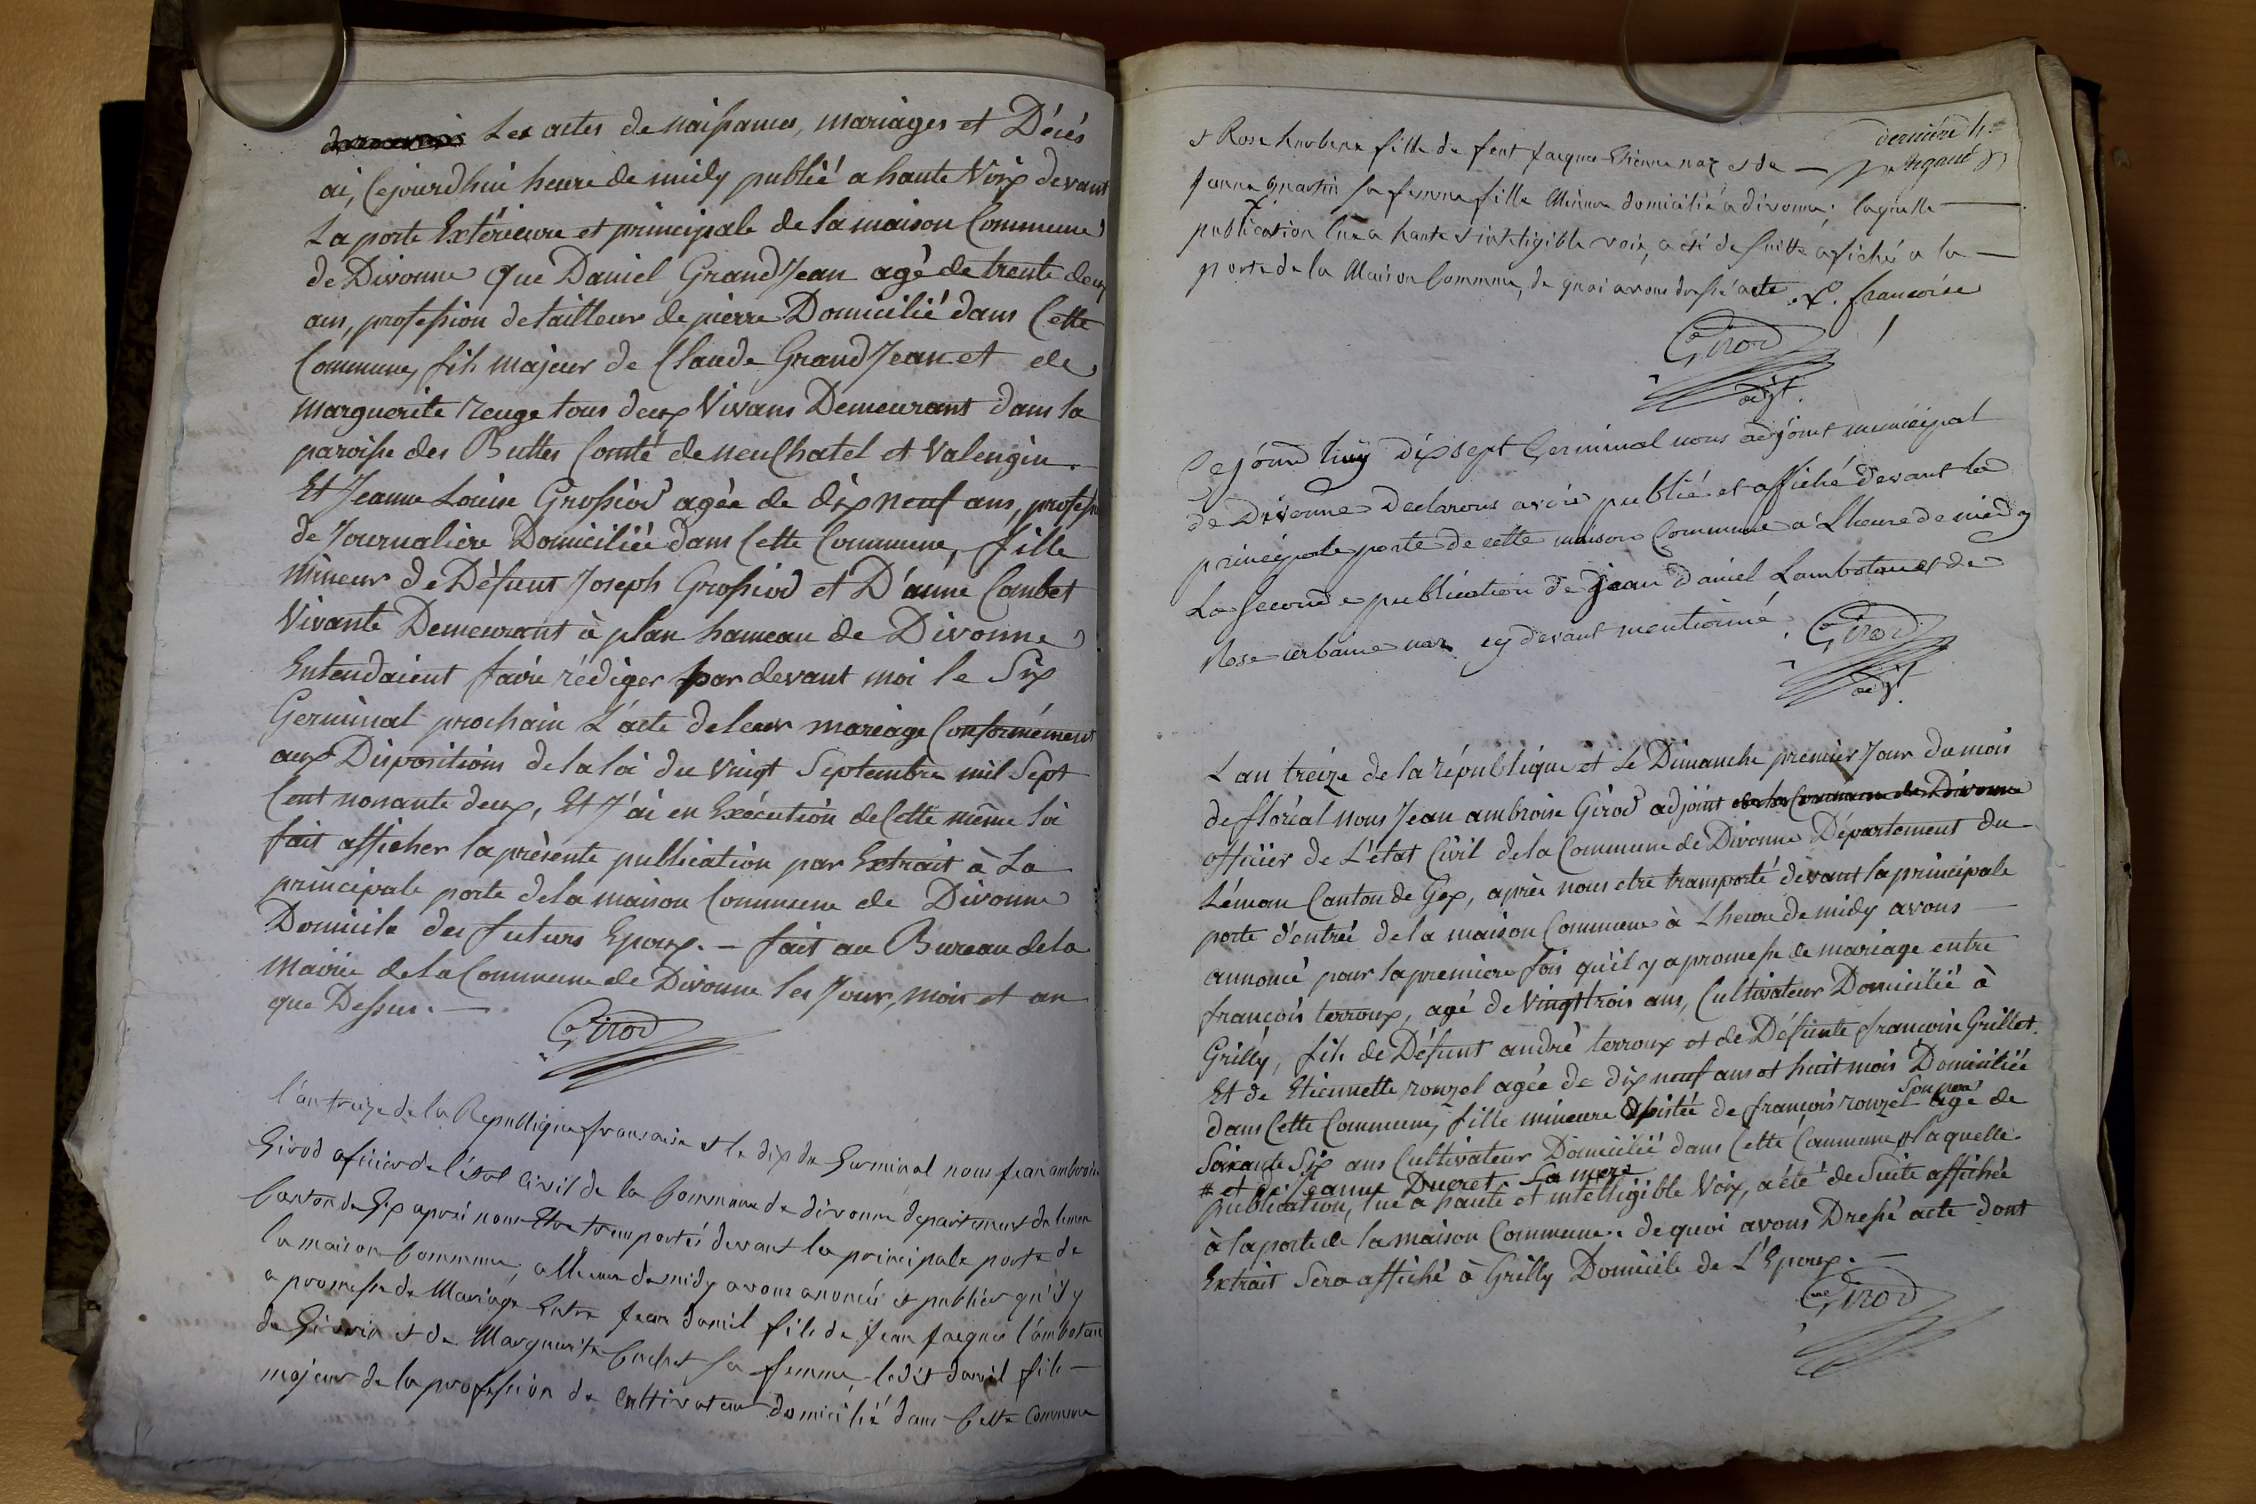 Les actes de naissances, mariages et Décés
ai, Cejourdhui heure de midy publié a haute Voix devant
La porte Extérieure et principale de la maison Commune
de Divonne que Daniel GrandJean agé de trente deux
ans, profession de tailleur de pierre Domicilié dans Cette
Commune, fils majeur de Claude GrandJean et de
marguerite reuge tous deux Vivans Demeurant dans la
paroisse des Buttes Comté de neuChatel et Valengin.
Et Jeanne Louise Grossiod agée de dix neuf ans, profession
de Journaliere Domiciliée dans Cette Commune, fille
mineur de Défunt Joseph Grossiod et D'anne Combet
Vivante Demeurant à plan hameau de Divonne
Entendaient faire rédiger par devant moi le Six
Germinal prochain L'acte de leur mariage Conformément
aux Dispositions de la loi du Vingt Septembre mil Sept
Cent nonante deux, Et J'ai en Exécution de Cette même loi
fait afficher la présente publication par Extrait à La
principale porte de la maison Commune de Divonne
Domicile des futurs Epoux. — fait au Bureau de la
Mairie de la Commune de Divonne les Jour, mois et an
que Dessus. —
Girod
l'an treize de la Republique fransaise et le dix de Germinal nous jean ambroise
Girod oficier de l'état Civil de la Commune de divonne departement du leman
Canton de Gex aprés nous Etre transportés devant la principale porte de
la maison Commune, a lheure de midy avons anoncés et publiés qu'il y
a promesse de Mariage Entre jean daniel fils de jean jaques lambotan
de et de Marguerite sa femme ledit daniel fils —
majeur de la profession de Cultivateur domicilié dans Cette Commune
et Rose fille de feut jacques Etienne naz et de —
janne martin sa femme fille Mineur domicilié a divonne; laquelle —
publication lue a haute et inteligible voix, a été de suitte afiché a la —
porte de la Maison Commune, de quoi avons dressé acte . françoise
Girod
adjt.
Cejourd'huy dix sept Germinal nous adjoint municipal
de Divonne Declarons avoir publié et affiché devant la
principale porte de cette maison Commune a Lheure de midy
La seconde publication de jean daniel Lambotan et de
Rose urbaine naz cy devant mentionné.
Girod
adjt.
L an treize de la république et Le Dimanche premier Jour du mois
de floréal nous Jean ambroise Girod adjoint de la Commune de Divonne
officier de L'état Civil de la Commune de Divonne Département du
Léman Canton de Gex, après nous etre transporté devant la principale
porte d'entrée de la maison Commune à Lheure de midy avons —
annoncé pour la premiere fois qu'il y a promesse de mariage entre
françois terroux, agé de Vingt trois ans, Cultivateur Domicilié à
Grilly, fils de Défunt andré terroux et de Défunte francoise Grillet.
Et de Etiennette rouzel agée de dix neuf ans et huit mois Domiciliée
dans Cette Commune, fille mineure de françois rouzel son pere agé de
Soixante Six ans Cultivateur Domicilié dans Cette Commune # laquelle
# et de jeanne Ducret Sa mere
publication, lue a haute et intelligible Voix, a été de Suite affichée
à la porte de la maison Commune. de quoi avons Dressé acte dont
Extrait Sera affiché à Grilly Domicile de L'Epoux. —
Girod